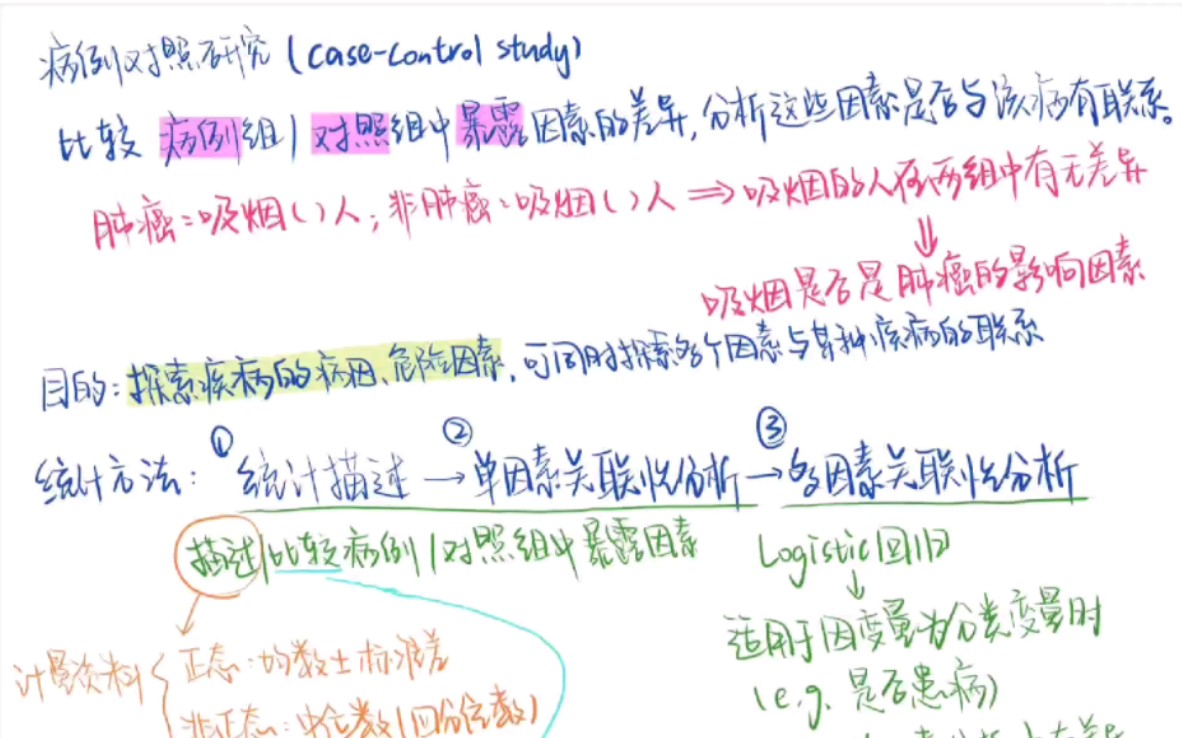 病例对照研究 (case-control study)
比较 病例组/对照组中暴露因素的差异,分析这些因素是否与该病有联系。
肺癌:吸烟( )人;非肺癌:吸烟( )人 ⇒ 吸烟的人在两组中有无差异
⇓
吸烟是否是肺癌的影响因素
目的:探索疾病的病因、危险因素,可同时探索多个因素与某种疾病的联系
① ② ③
统计方法: 统计描述 → 单因素关联性分析 → 多因素关联性分析
描述/比较病例/对照组中暴露因素 Logistic回归
↓
适用于因变量为分类变量时
(e.g. 是否患病)
计量资料 { 正态:均数±标准差
非正态:中位数(四分位数)